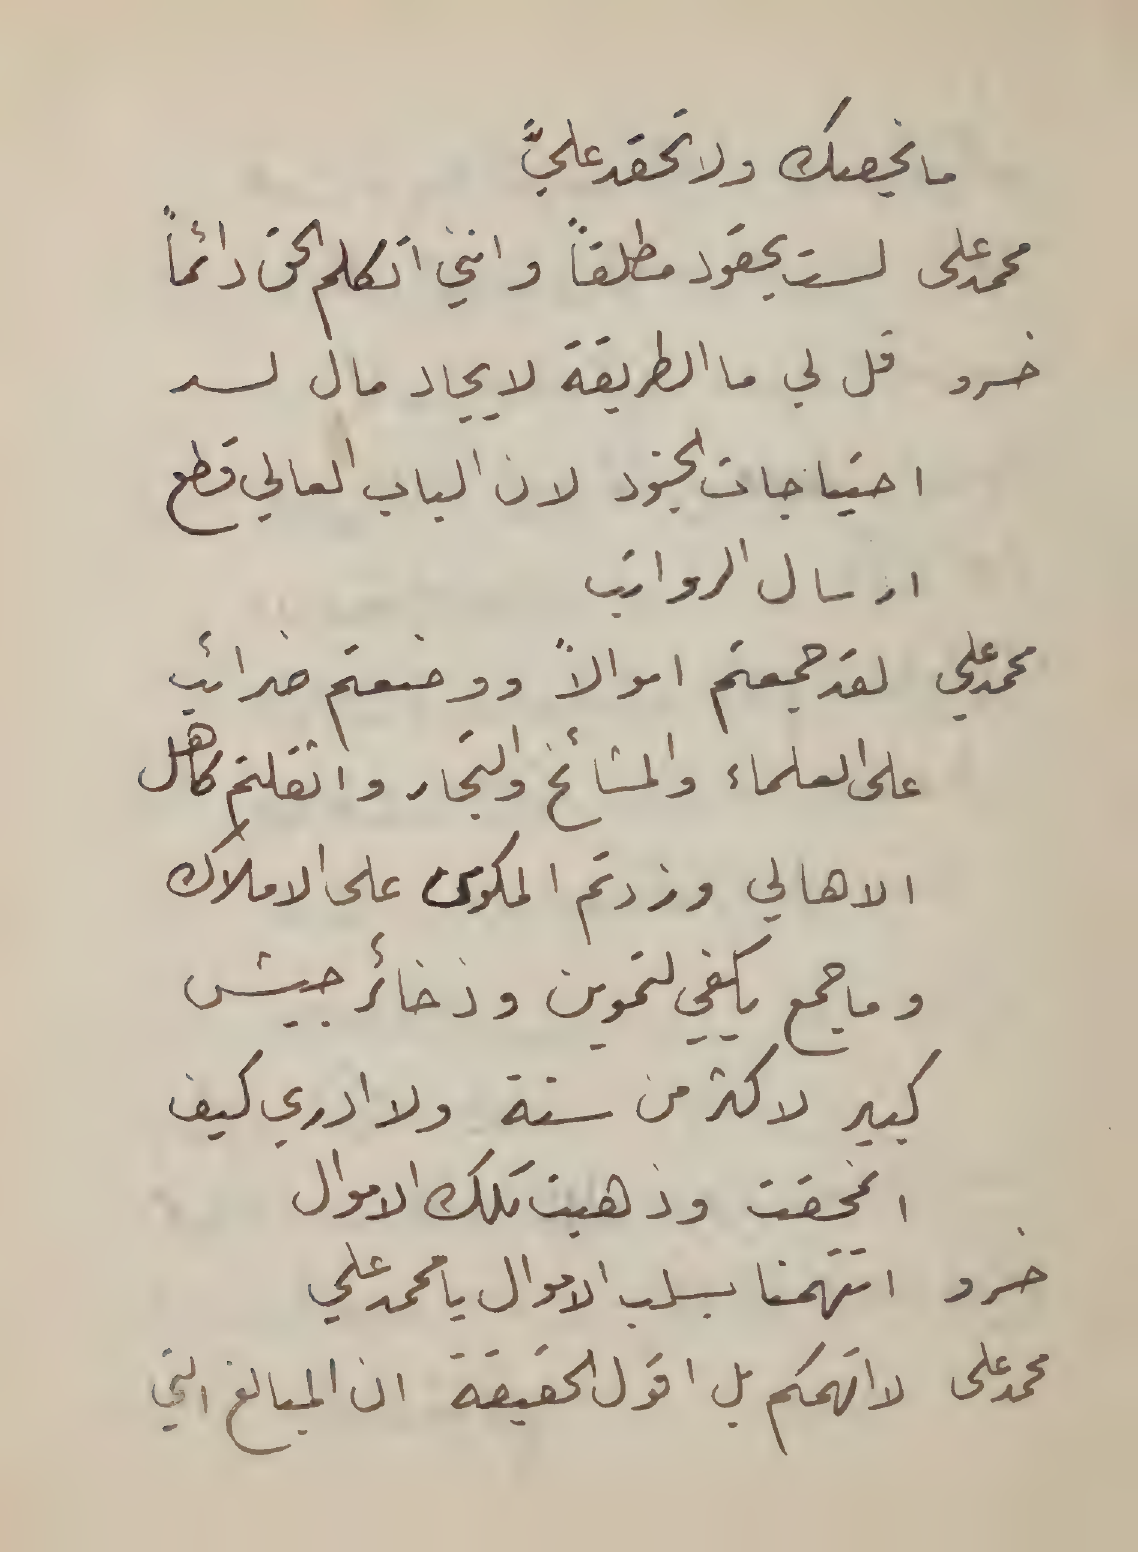 ما يخصك ولا تحقد عليَّ
محمد على لست بحقود مطلقاً وانني اتكلم الحق دائماً
خسرو قل لي ما الطريقة لايجاد مال لسد
احتياجات الجنود لان الباب العالي قطع
ارسال الرواتب
محمد علي لقد جمعتم اموالاً ووضعتم ضرائب
على العلماء والمشائخ والتجار واثقلتم كاهل
الاهالي وزدتم المكوس على الاملاك
وما جمع يكفي لتموين وذخائر جيش
كبير لاكثر من سنة ولا ادري كيف
انمحقت وذهبت تلك الاموال
خسرو اتتهمنا بسلب الاموال يا محمد علي
محمد على لا اتهمكم بل اقول الحقيقة ان المبالغ التي